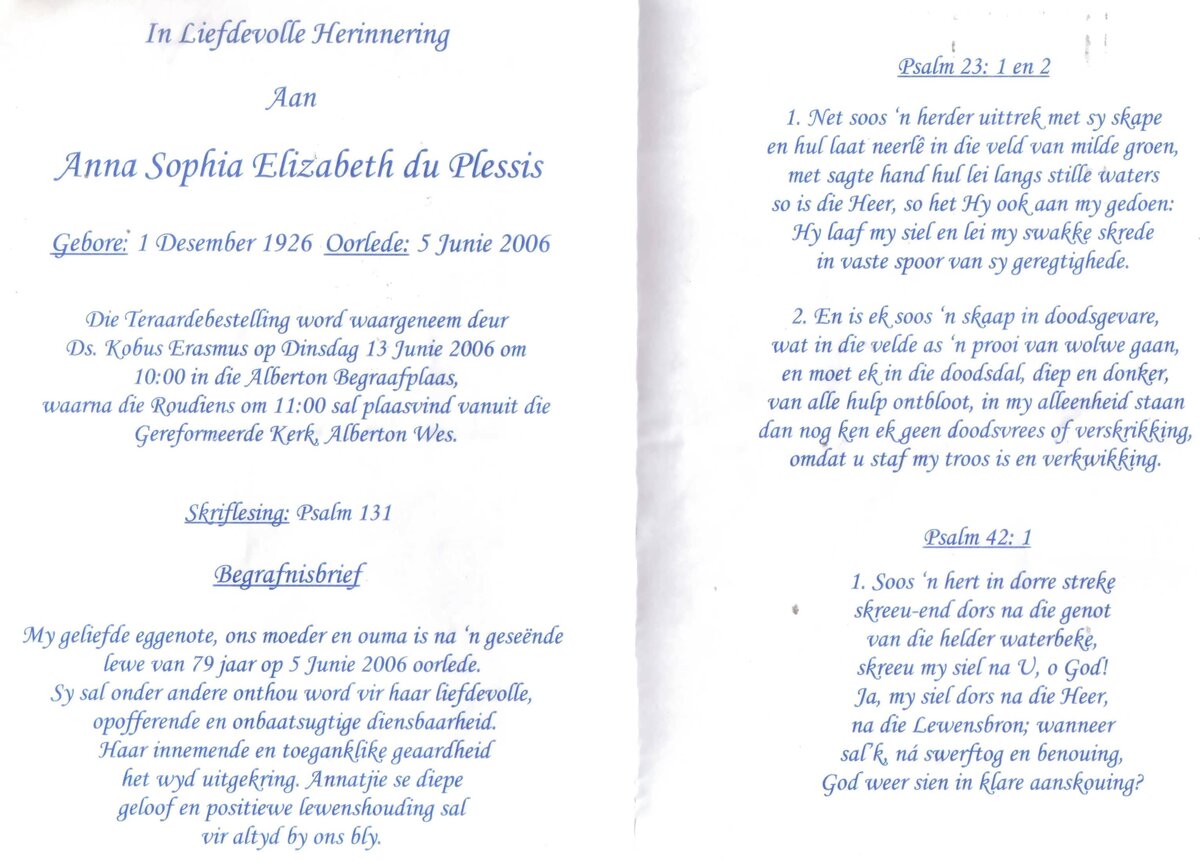 In Liefdevolle Herinnering
Aan
Anna Sophia Elizabeth du Plessis
Gebore: 1 Desember 1926 Oorlede: 5 Junie 2006
Die Teraardebestelling word waargeneem deur
Ds. Kobus Erasmus op Dinsdag 13 Junie 2006 om
10:00 in die Alberton Begraafplaas,
waarna die Roudiens om 11:00 sal plaasvind vanuit die
Gereformeerde Kerk, Alberton Wes.
Skriflesing: Psalm 131
Begrafnisbrief
My geliefde eggenote, ons moeder en ouma is na ‘n geseënde
lewe van 79 jaar op 5 Junie 2006 oorlede.
Sy sal onder andere onthou word vir haar liefdevolle,
opofferende en onbaatsugtige diensbaarheid.
Haar innemende en toeganklike geaardheid
het wyd uitgekring. Annatjie se diepe
geloof en positiewe lewenshouding sal
vir altyd by ons bly.
Psalm 23: 1 en 2
1. Net soos ‘n herder uittrek met sy skape
en hul laat neerlê in die veld van milde groen,
met sagte hand hul lei langs stille waters
so is die Heer, so het Hy ook aan my gedoen:
Hy laaf my siel en lei my swakke skrede
in vaste spoor van sy geregtighede.
2. En is ek soos ‘n skaap in doodsgevare,
wat in die velde as ‘n prooi van wolwe gaan,
en moet ek in die doodsdal, diep en donker,
van alle hulp ontbloot, in my alleenheid staan
dan nog ken ek geen doodsvrees of verskrikking,
omdat u staf my troos is en verkwikking.
Psalm 42: 1
1. Soos ‘n hert in dorre streke
skreeu-end dors na die genot
van die helder waterbeke,
skreeu my siel na U, o God!
Ja, my siel dors na die Heer,
na die Lewensbron; wanneer
sal’k, ná swerftog en benouing,
God weer sien in klare aanskouing?